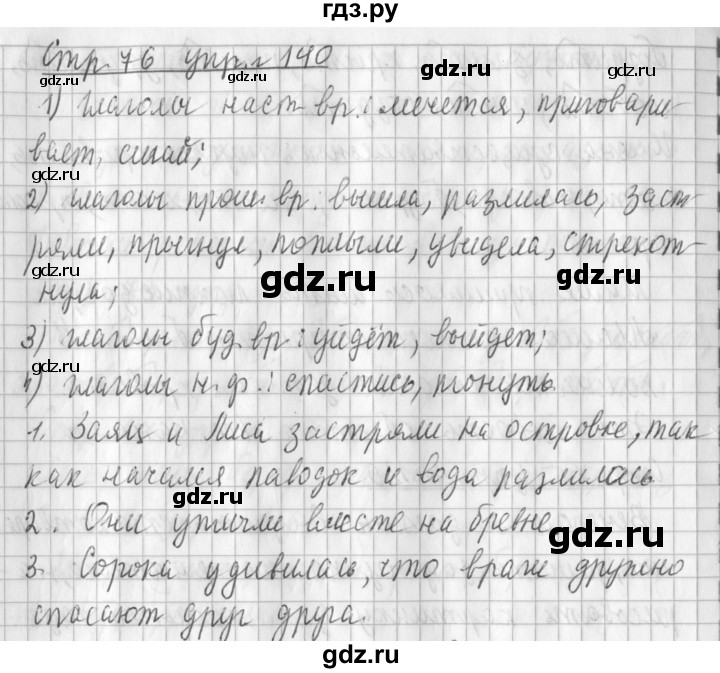 гдз.ру
Стр 76 упр. 140
gdz.ru
gdz.ru
1) глаголы наст вр.: мечется, приговари-
gdz.ru
gdz.ru
вает, сигай;
gdz.ru
2) глаголы прош. вр. вышла, разлилась, заст-
ряли, прыгнул, поплыли, увидела, стрекот-
gdz.ru
gdz.ru
gdz.ru
нула;
3) глаголы буд. вр.: уйдёт, выйдет;
gdz.ru
gdz.ru
глаголы н. ф.: спастись, тонуть.
1. Заяц и Лиса застряли на островке, так
как начался паводок и вода разлилась
gdz.ru
gdz.ru
2. Они уплыли вместе на бревне
3. Сорока удивилась, что враги дружно
gdz.ru
gdz.ru
спасают друг друга.
gdz.ru
gdz.ru